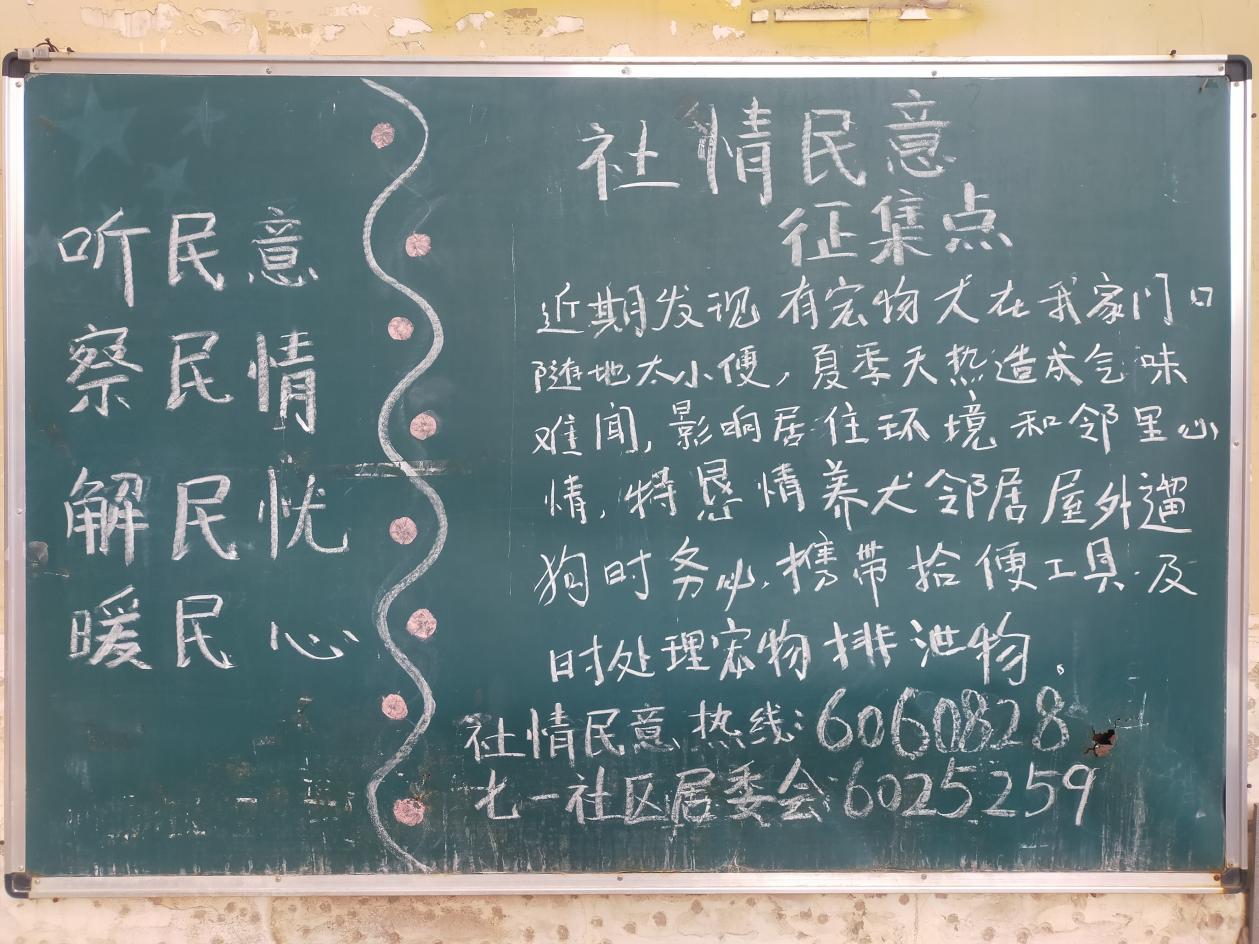 听民意
察民情
解民忧
暖民心
社情民意
征集点
近期发现有宠物犬在我家门口
随地大小便，夏季天热造成气味
难闻，影响居住环境和邻里心
情，特恳情养犬邻居屋外遛
狗时务必携带拾便工具及
时处理宠物排泄物。
社情民意热线：6060828
七一社区居委会：6025259